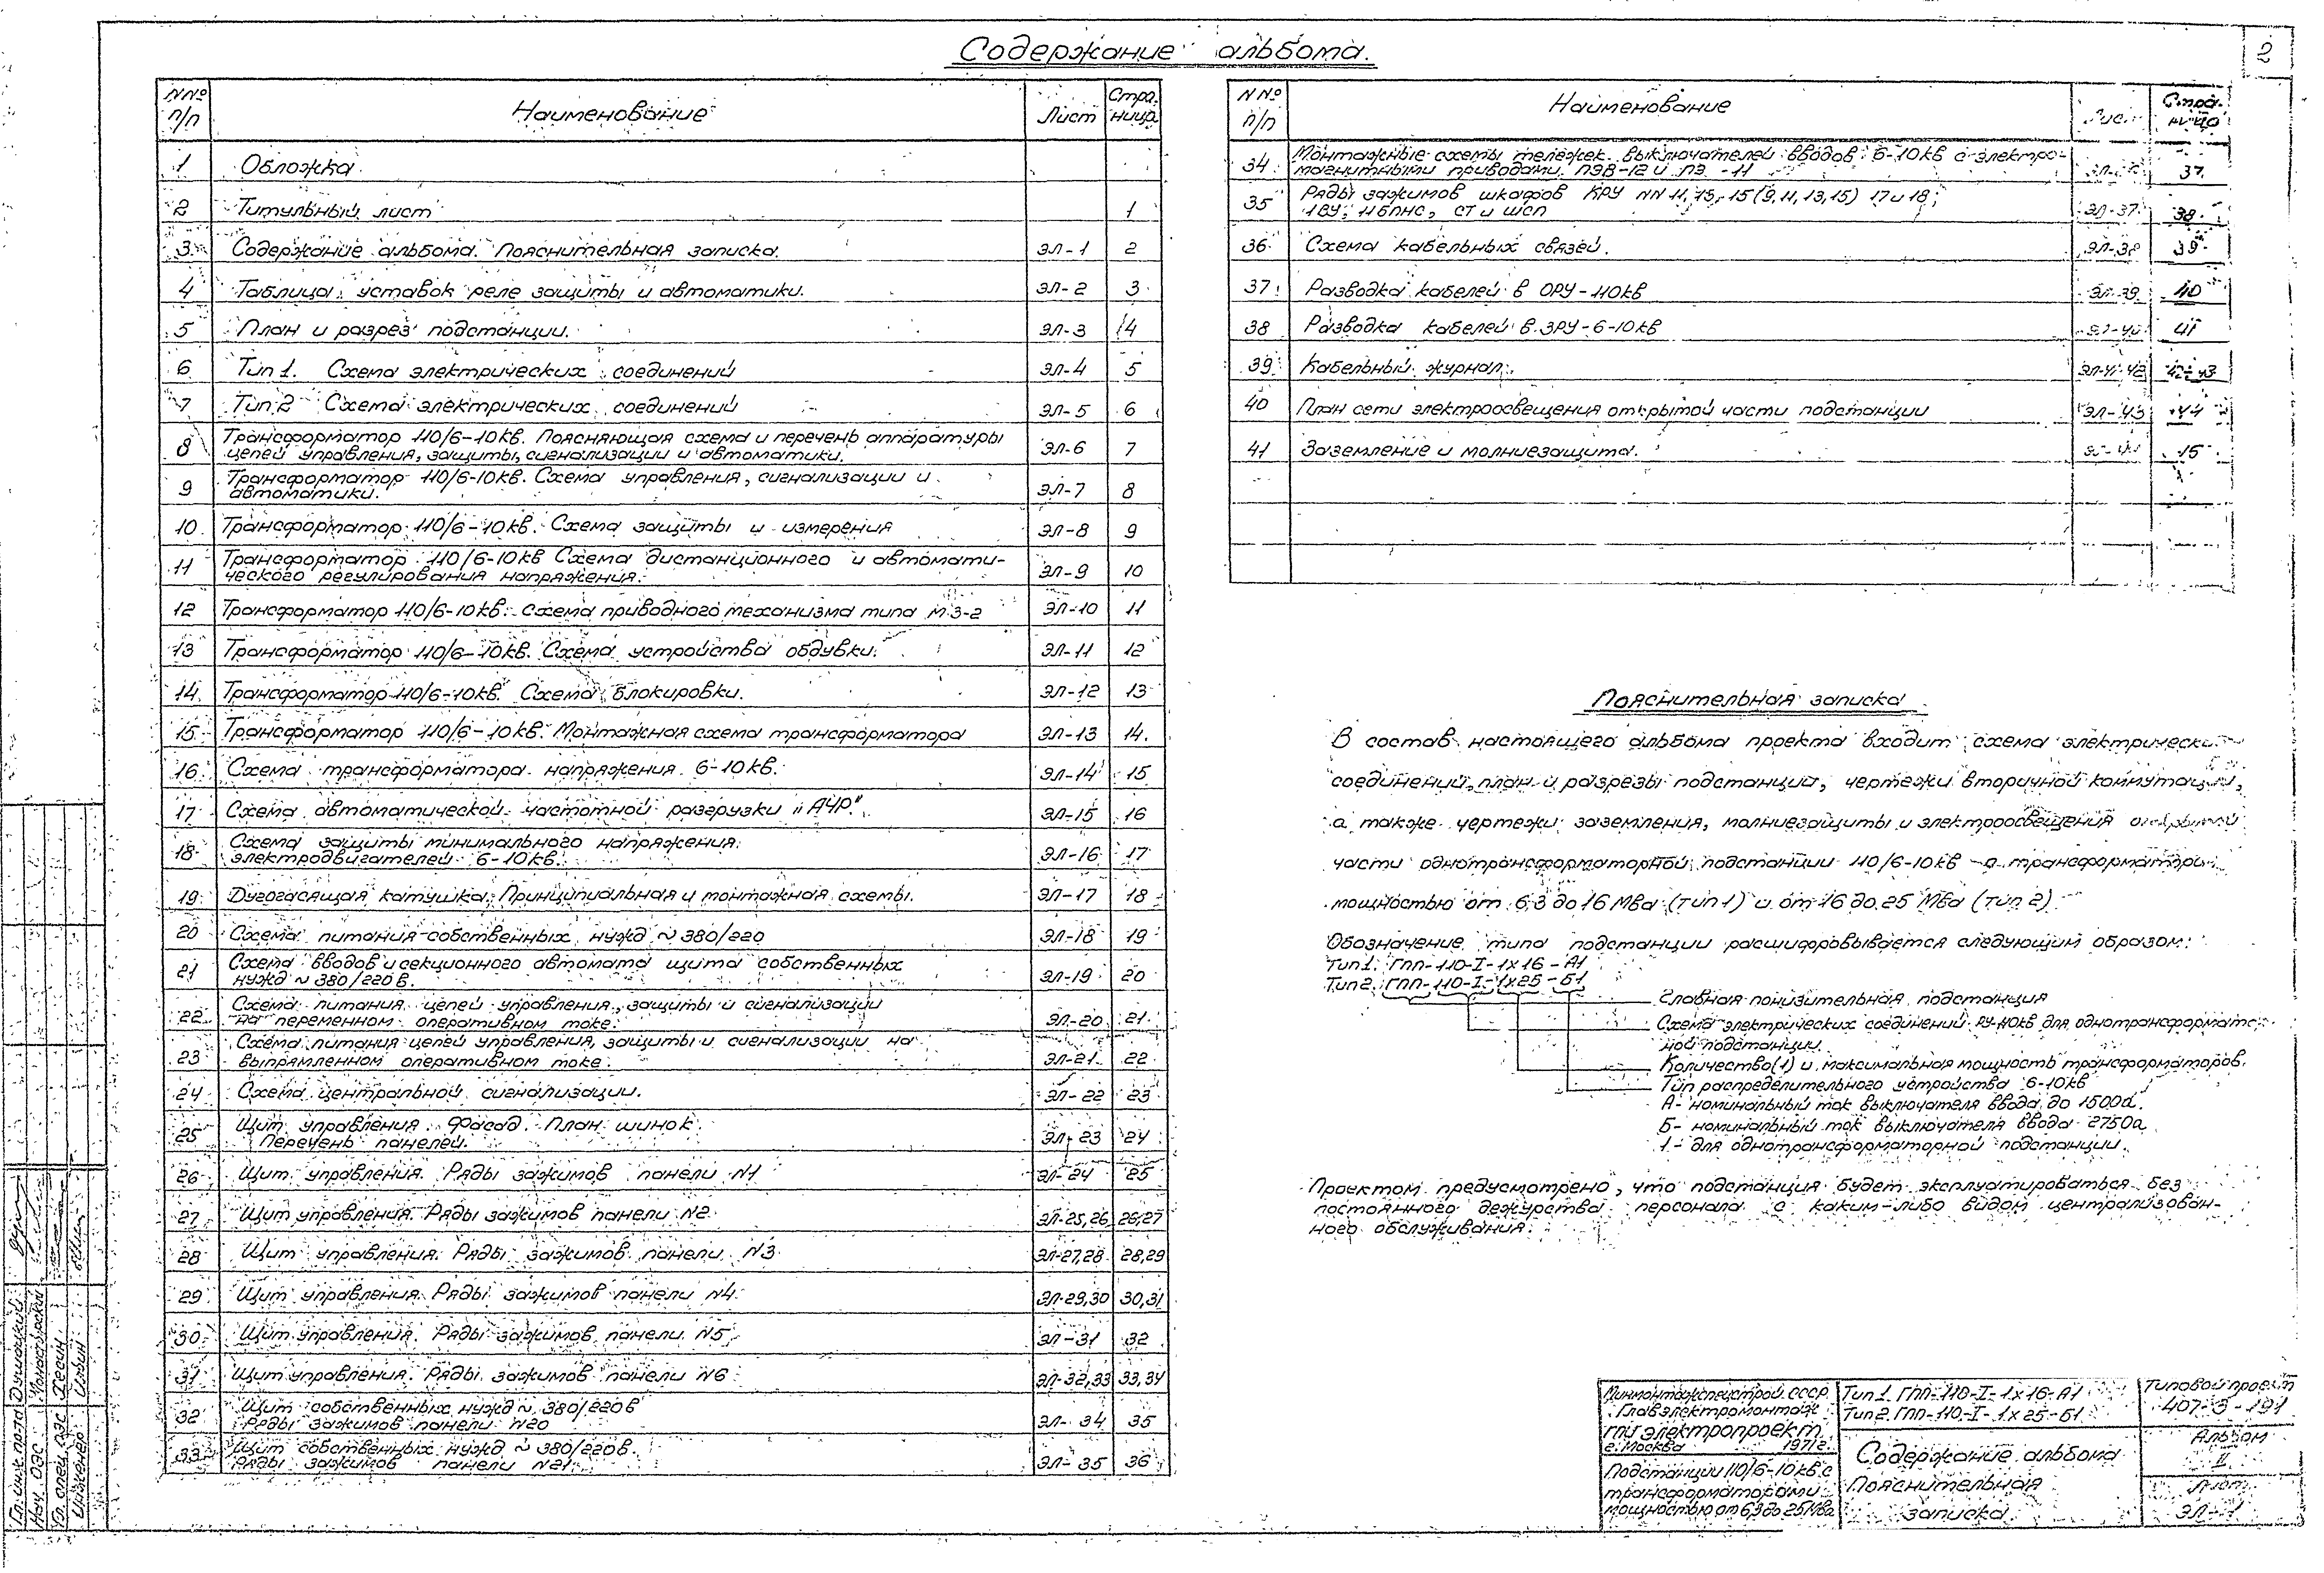 Содержание альбома.
2
NNº п/п Наименование Лист Страница
1 Обложка
2 Титульный лист 1
3 Содержание альбома. Пояснительная записка. ЭЛ-1 2
4 Таблицы уставок реле защиты и автоматики. ЭЛ-2 3
5 План и разрез подстанции. ЭЛ-3 4
6 Тип 1. Схема электрических соединений ЭЛ-4 5
7 Тип 2 Схема электрических соединений ЭЛ-5 6
8 Трансформатор 110/6-10кв. Поясняющая схема и перечень аппаратуры
цепей управления, защиты, сигнализации и автоматики. ЭЛ-6 7
9 Трансформатор 110/6-10кв. Схема управления, сигнализации и
автоматики. ЭЛ-7 8
10 Трансформатор 110/6-10кв. Схема защиты и измерения ЭЛ-8 9
11 Трансформатор 110/6-10кв Схема дистанционного и автомати-
ческого регулирования напряжения. ЭЛ-9 10
12 Трансформатор 110/6-10кв. Схема приводного механизма типа МЗ-2 ЭЛ-10 11
13 Трансформатор 110/6-10кв. Схема устройства обдувки. ЭЛ-11 12
14 Трансформатор 110/6-10кв. Схема блокировки. ЭЛ-12 13
15 Трансформатор 110/6-10кв. Монтажная схема трансформатора ЭЛ-13 14.
16 Схема трансформатора напряжения 6-10кв. ЭЛ-14 15
17 Схема автоматической частотной разгрузки "АЧР". ЭЛ-15 16
18 Схема защиты минимального напряжения
электродвигателей 6-10кв. ЭЛ-16 17
19 Дугогасящая катушка. Принципиальная и монтажная схемы. ЭЛ-17 18
20 Схема питания собственных нужд ~ 380/220 ЭЛ-18 19
21 Схема вводов и секционного автомата щита собственных
нужд ~ 380/220в. ЭЛ-19 20
22 Схема питания цепей управления, защиты и сигнализации
на переменном оперативном токе. ЭЛ-20 21
23 Схема питания цепей управления, защиты и сигнализации на
выпрямленном оперативном токе. ЭЛ-21 22
24 Схема центральной сигнализации. ЭЛ-22 23
25 Щит управления. Фасад. План шинок.
Перечень панелей. ЭЛ-23 24
26 Щит управления. Ряды зажимов панели N1 ЭЛ-24 25
27 Щит управления. Ряды зажимов панели N2 ЭЛ-25,26 26,27
28 Щит управления. Ряды зажимов панели N3 ЭЛ-27,28 28,29
29 Щит управления. Ряды зажимов панели N4 ЭЛ-29,30 30,31
30 Щит управления. Ряды зажимов панели N5 ЭЛ-31 32
31 Щит управления. Ряды зажимов панели N6 ЭЛ-32,33 33,34
32 Щит собственных нужд ~ 380/220в
Ряды зажимов панели N20 ЭЛ-34 35
33 Щит собственных нужд ~ 380/220в.
Ряды зажимов панели N21 ЭЛ-35 36
NNº п/п Наименование Лист Страница
34 Монтажные схемы тележек выключателей вводов 6-10кв с электро-
магнитными приводами ПЭВ-12 и ПЭ -11 37
35 Ряды зажимов шкафов КРУ NN 11, 13, 15 (9, 11, 13, 15) 17 и 18,
1ВУ, НБПНС, СТ и ШСП ЭЛ-37 38
36 Схема кабельных связей. ЭЛ-38 39
37 Разводка кабелей в ОРУ-110кв ЭЛ-39 40
38 Разводка кабелей в ЗРУ-6-10кв ЭЛ-40 41
39 Кабельный журнал. ЭЛ-41-42 42-43
40 План сети электроосвещения открытой части подстанции ЭЛ-43 44
41 Заземление и молниезащита.
Пояснительная записка
В состав настоящего альбома проекта входит схема электрических
соединений, план и разрезы подстанции, чертежи вторичной коммутации,
а также чертежи заземления, молниезащиты и электроосвещения открытой
части однотрансформаторной подстанции 110/6-10кв с трансформаторами
мощностью от 6,3 до 16 Мва (тип 1) и от 16 до 25 Мва (тип 2)
Обозначение типа подстанции расшифровывается следующим образом:
Тип 1. ГПП-110-I-1х16-А1
Тип 2. ГПП-110-I-1х25-Б1
Главная понизительная подстанция
Схема электрических соединений РУ-110кв для однотрансформатор-
ной подстанции.
Количество(1) и максимальная мощность трансформаторов.
Тип распределительного устройства 6-10кв
А- номинальный ток выключателя ввода до 1500а.
Б- номинальный ток выключателя ввода 2750а
1- для однотрансформаторной подстанции.
Проектом предусмотрено, что подстанция будет эксплуатироваться без
постоянного дежурства персонала с каким-либо видом централизован-
ного обслуживания.
Минмонтажспецстрой СССР
Главэлектромонтаж
ГПИ электропроект
г. Москва 1971г.
Подстанции 110/6-10кв с
трансформаторами
мощностью от 6,3 до 25Мва
Тип 1. ГПП-110-I-1х16-А1
Тип 2. ГПП-110-I-1х25-Б1
Содержание альбома
Пояснительная
записка.
Типовой проект
407-3-191
Альбом
II
Лист
ЭЛ-1
Гл. инж. пр-та
Нач. ОЭС
Гл. спец. ОЭС Хесин
Инженер